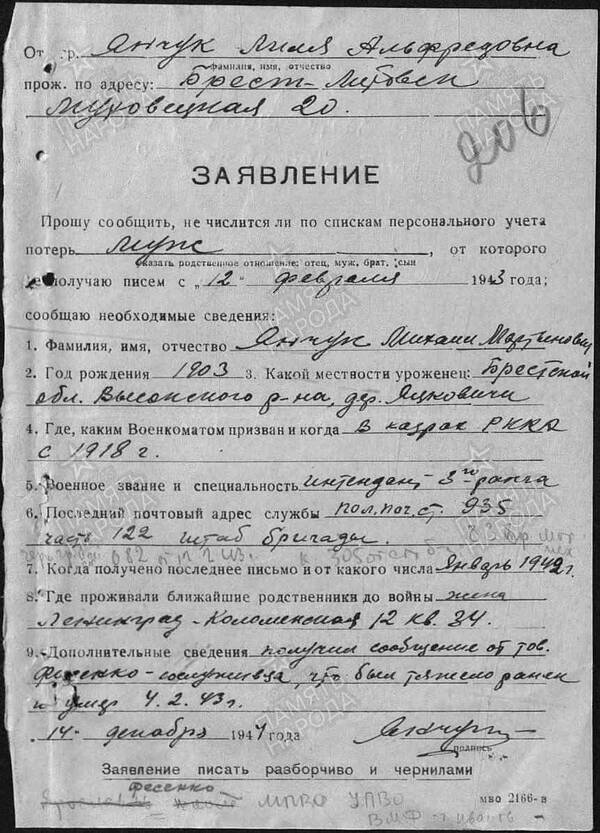 От гр. Янчук Лиля Альфредовна
фамилия, имя, отчество
прож. по адресу: Брест-Литовск
Муховецкая 20.
206
ЗАЯВЛЕНИЕ
Прошу сообщить, не числится ли по спискам персонального учета
потерь муж, от которого
указать родственное отношение: отец, муж, брат, сын
не получаю писем с „12" февраля 1943 года;
сообщаю необходимые сведения:
1. Фамилия, имя, отчество Янчук Михаил Мартынович
2. Год рождения 1903 3. Какой местности уроженец: Брестской
обл. Высоковского р-на, дер. Яцковичи
4. Где, каким Военкоматом призван и когда В кадрах РККА
с 1918 г.
5. Военное звание и специальность интендант 3го ранга
6. Последний почтовый адрес службы пол. поч. ст. 935
часть 122 штаб бригады.
7. Когда получено последнее письмо и от какого числа Январь 1942 г.
8. Где проживали ближайшие родственники до войны жена
Ленинград-Коломенская 12 кв. 34.
9. Дополнительные сведения получил сообщение от тов.
Фесенко-сослуживца, что был тяжело ранен
и умер 4.2.43 г.
14 декабря 1944 года Янчук
подпись
Заявление писать разборчиво и чернилами
Фесенко
МПВО УПВО
ВМФ
мво 2166-в
ПАМЯТЬ НАРОДА